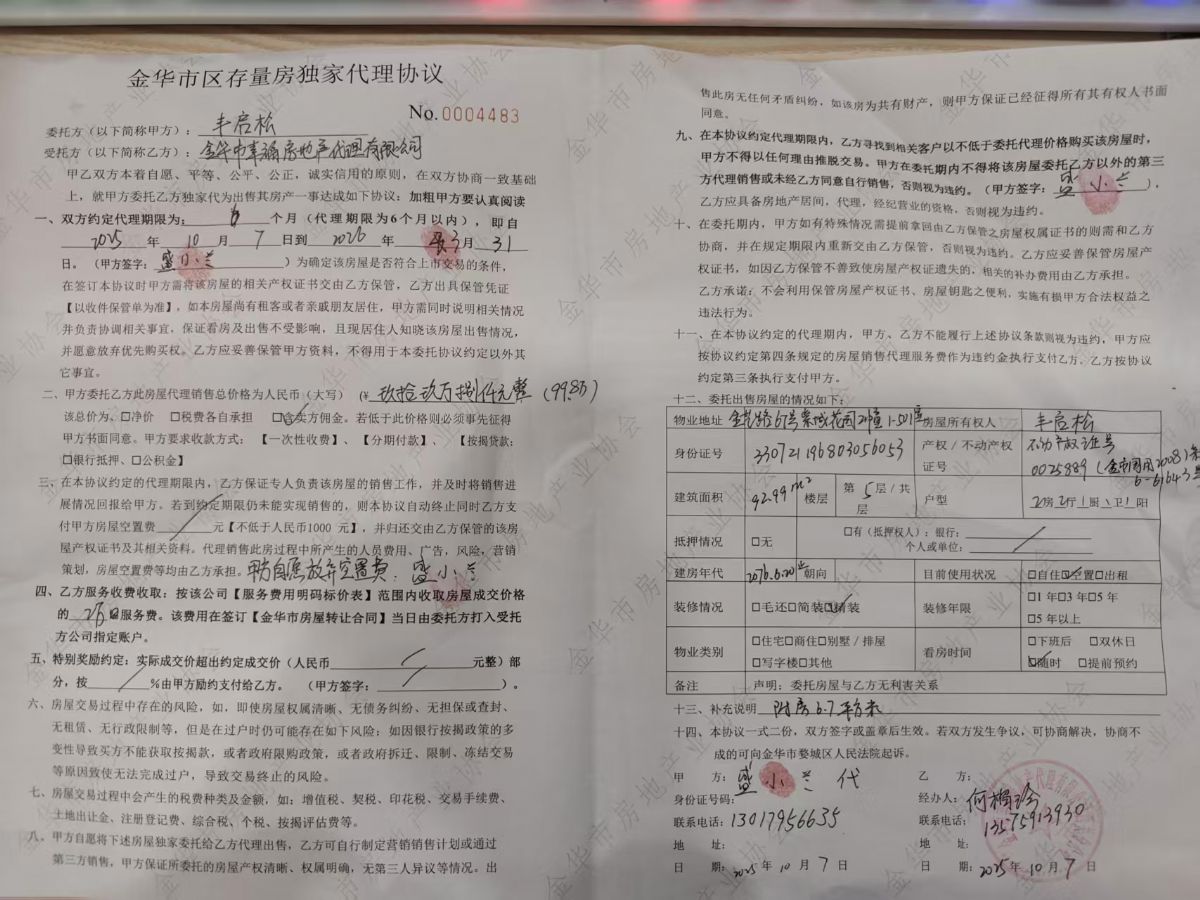 金华市区存量房独家代理协议
No.0004483
委托方（以下简称甲方）：丰启松
受托方（以下简称乙方）：金华市幸福房地产代理有限公司
甲乙双方本着自愿、平等、公平、公正，诚实信用的原则，在双方协商一致基础
上，就甲方委托乙方独家代为出售其房产一事达成如下协议：加粗甲方要认真阅读
一、双方约定代理期限为：6个月（代理期限为6个月以内），即自
2025年10月7日到2026年3月31
日。（甲方签字：盛小兰）为确定该房屋是否符合上市交易的条件，
在签订本协议时甲方需将该房屋的相关产权证书交由乙方保管，乙方出具保管凭证
【以收件保管单为准】，如本房屋尚有租客或者亲戚朋友居住，甲方需同时说明相关情况
并负责协调相关事宜，保证看房及出售不受影响，且现居住人知晓该房屋出售情况，
并愿意放弃优先购买权。乙方应妥善保管甲方资料，不得用于本委托协议约定以外其
它事宜。
二、甲方委托乙方此房屋代理销售总价格为人民币（大写）（¥玖拾玖万捌仟元整（99.8万）
该总价为、□净价 □税费各自承担 □含卖方佣金。若低于此价格则必须事先征得
甲方书面同意。甲方要求收款方式：【一次性收费】、【分期付款】、【按揭贷款：
□银行抵押、□公积金】
三、在本协议约定的代理期限内，乙方保证专人负责该房屋的销售工作，并及时将销售进
展情况回报给甲方。若到约定期限仍未能实现销售的，则本协议自动终止同时乙方支
付甲方房屋空置费 元【不低于人民币1000 元】，并归还交由乙方保管的该房
屋产权证书及其相关资料。代理销售此房过程中所产生的人员费用、广告，风险，营销
策划，房屋空置费等均由乙方承担。甲方自愿放弃空置费．盛小兰
四、乙方服务收费收取：按该公司【服务费用明码标价表】范围内收取房屋成交价格
的 2%服务费。该费用在签订【金华市房屋转让合同】当日由委托方打入受托
方公司指定账户。
五、特别奖励约定：实际成交价超出约定成交价（人民币 元整）部
分，按 %由甲方励约支付给乙方。（甲方签字： ）。
六、房屋交易过程中存在的风险，如，即使房屋权属清晰、无债务纠纷、无担保或查封、
无租赁、无行政限制等，但是在过户时仍可能存在如下风险；如因银行按揭政策的多
变性导致买方不能获取按揭款，或者政府限购政策，或者政府拆迁、限制、冻结交易
等原因致使无法完成过户，导致交易终止的风险。
七、房屋交易过程中会产生的税费种类及金额，如：增值税、契税、印花税、交易手续费、
土地出让金、注册登记费、综合税、个税、按揭评估费等。
八、甲方自愿将下述房屋独家委托给乙方代理出售，乙方可自行制定营销销售计划或通过
第三方销售，甲方保证所委托的房屋产权清晰、权属明确，无第三人异议等情况。出
售此房无任何矛盾纠纷，如该房为共有财产，则甲方保证已经征得所有其有权人书面
同意。
九、在本协议约定代理期限内，乙方寻找到相关客户以不低于委托代理价格购买该房屋时，
甲方不得以任何理由推脱交易。甲方在委托期内不得将该房屋委托乙方以外的第三
方代理销售或未经乙方同意自行销售，否则视为违约。（甲方签字：盛小兰），
乙方应具备房地产居间，代理，经纪营业的资格，否则视为违约。
十、在委托期内，甲方如有特殊情况需提前拿回由乙方保管之房屋权属证书的则需和乙方
协商，并在规定期限内重新交由乙方保管，否则视为违约。乙方应妥善保管房屋产
权证书，如因乙方保管不善致使房屋产权证遗失的，相关的补办费用由乙方承担。
乙方承诺：不会利用保管房屋产权证书、房屋钥匙之便利，实施有损甲方合法权益之
违法行为。
十一、在本协议约定的代理期内，甲方、乙方不能履行上述协议条款则视为违约，甲方应
按协议约定第四条规定的房屋销售代理服务费作为违约金执行支付乙方。乙方按协议
约定第三条执行支付甲方。
十二、委托出售房屋的情况如下：
物业地址 金瓯路67号 花园21幢1-501室 房屋所有权人 丰启松
身份证号 330721196803056053 产权／不动产权证号 不动产权证号 0025889（金市国用2008）第6-6164 3号
建筑面积 92.99m² 楼层 第5层／共 层 户型 2房2厅1厨1卫1阳
抵押情况 □无 □有（抵押权人）：银行：
个人或单位：
建房年代 朝向 目前使用状况 □自住□空置□出租
装修情况 □毛还□简装□精装 装修年限 □1年□3年□5年
□5年以上
物业类别 □住宅□商住□别墅／排屋 看房时间 □下班后 □双休日
□写字楼□其他 □随时 □提前预约
备注 声明：委托房屋与乙方无利害关系
十三、补充说明 附房6.7平方米
十四、本协议一式二份，双方签字或盖章后生效。若双方发生争议，可协商解决，协商不
成的可向金华市婺城区人民法院起诉。
甲 方：盛小兰 代 乙 方：
身份证号码： 经办人：何梅玲
联系电话：13017956635 联系电话：13575913930
地 址： 地 址：
日 期：2025年10月7日 日 期：2025年10月7日